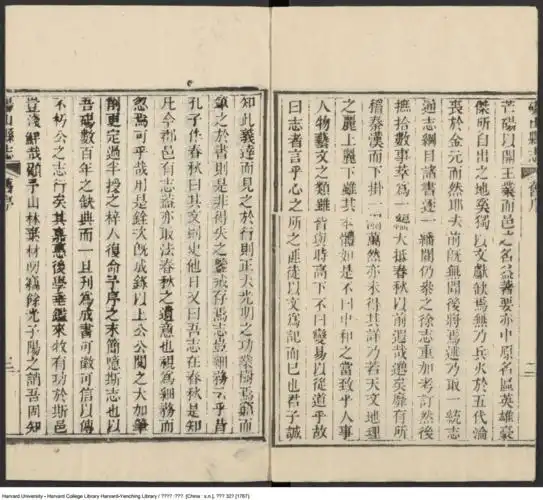 芒碭以開王業而邑之名益著要亦中原名區英雄豪
傑所自出之地奚獨以文獻缺焉無乃兵火於五代淪
喪於金元而然耶夫前既無聞後將焉述乃取一統志
通志綱目諸書逐一繙閱仍參之徐志重加考訂然後
摭拾數事萃為一編大抵春秋以前遠哉邈矣靡有所
稽秦漢而下掛一漏萬然亦未得其詳乃若天文地理
之麗上麗下雖其本體如是不曰中和之當致乎人事
人物藝文之類雖皆與時高下不曰變易以從道乎故
曰志者言乎心之所之匪徒以文為記而已也君子誠
碭山縣志 舊序 二
知此義達而見之於行則正大光明之功業樹焉窮而
筆之於書則是非得失之鑒戒存焉志豈細務云乎昔
孔子作春秋曰其文則史他日又曰吾志在春秋是知
凡今郡邑有志盖亦取法春秋之遺意也視為細務而
忽焉可乎哉用是銓次既成錄以上公公閱之大加筆
削更定過半授之梓人復命予序之末簡噫斯志也以
吾碭數百年之缺典而一旦刋為成書可徵可信以傳
不朽公之志行矣其嘉惠後學垂鑑來牧有功於斯邑
豈淺鮮哉顧予山林棄材叨竊餘光子陽之誚吾固知
碭山縣志 舊序 三
Harvard University - Harvard College Library Harvard-Yenching Library / ???? :???. [China : s.n.], ??? 32? [1767]